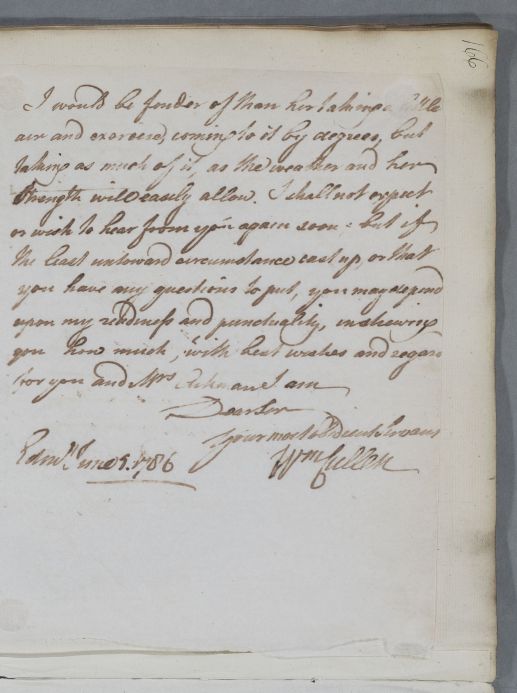 146
I would be fonder of than her taking a little
air and exercise, coming to it by degrees, but
taking as much of it, as the weather and her
strength will easily allow. I shall not expect
or wish to hear from you again soon: but if
the least untoward circumstance cast up, or that
you have any questions to put, you may depend
upon my readiness and punctuality, in shewing
you how much, with best wishes and regard
for you and Mrs I am
Dear Sir
your most obedient Servant
Edinr. June 5. 1786 Wm Cullen